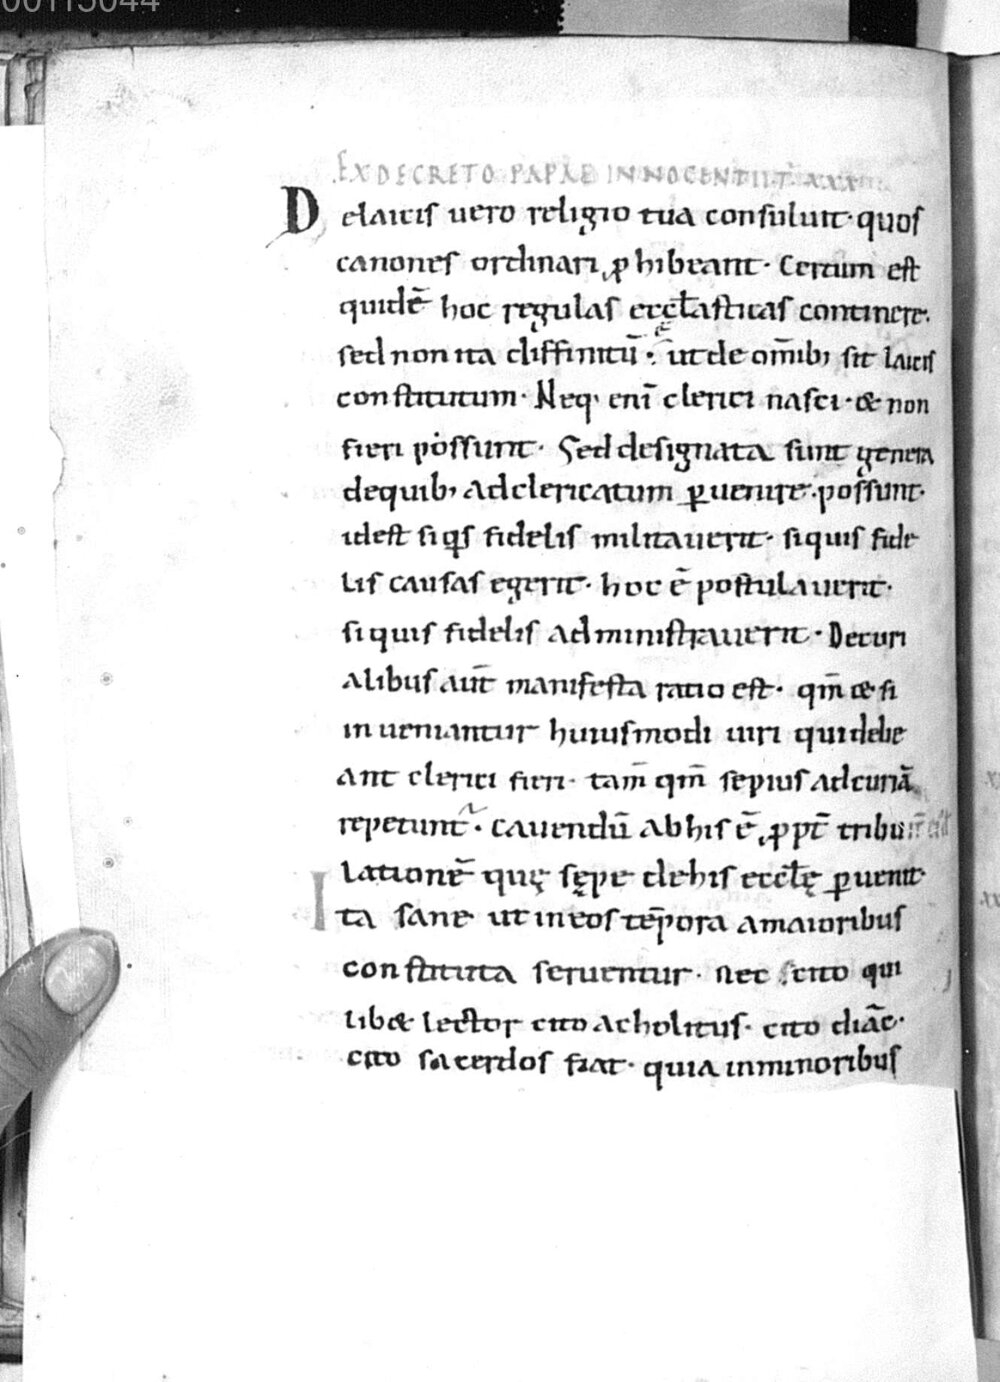 00115044
EX DECRETO PAPAE INNOCENTII T̄ XXXIII
Delaicis uero religio tua consuluit· quos
canones ordinari ꝓhibeant· Certum est
quidē hoc regulas ecclasticas continere.
sed non ita diffinitū·̣ ut de om̄ib; sit laicis
constitutum· Neq; enī clerici nasci· & non
fieri possunt· Sed designata sunt genera
dequib; adclericatum ꝑuenire· possunt·
idest siq̇s fidelis militauerit· siquis fide
lis causas egerit· hoc ē postulauerit·
siquis fidelis administrauerit· Decuri
alibus aut̄ manifesta ratio est· qm̄ & si
inueniantur huiusmodi uiri quidebe
ant clerici fieri· tam̄ qm̄ sepius adcuriā
repetunt̃· cauendū abhis ē ꝓpt̄ tribu
lationē quę sępe dehis ecclę ꝑuenit·
Ita sane ut ineos tēpora amaioribus
constituta seruentur· nec scito qui
lib& lector cito acholitus· cito diāc·
cito sacerdos fiat· quia inminoribus